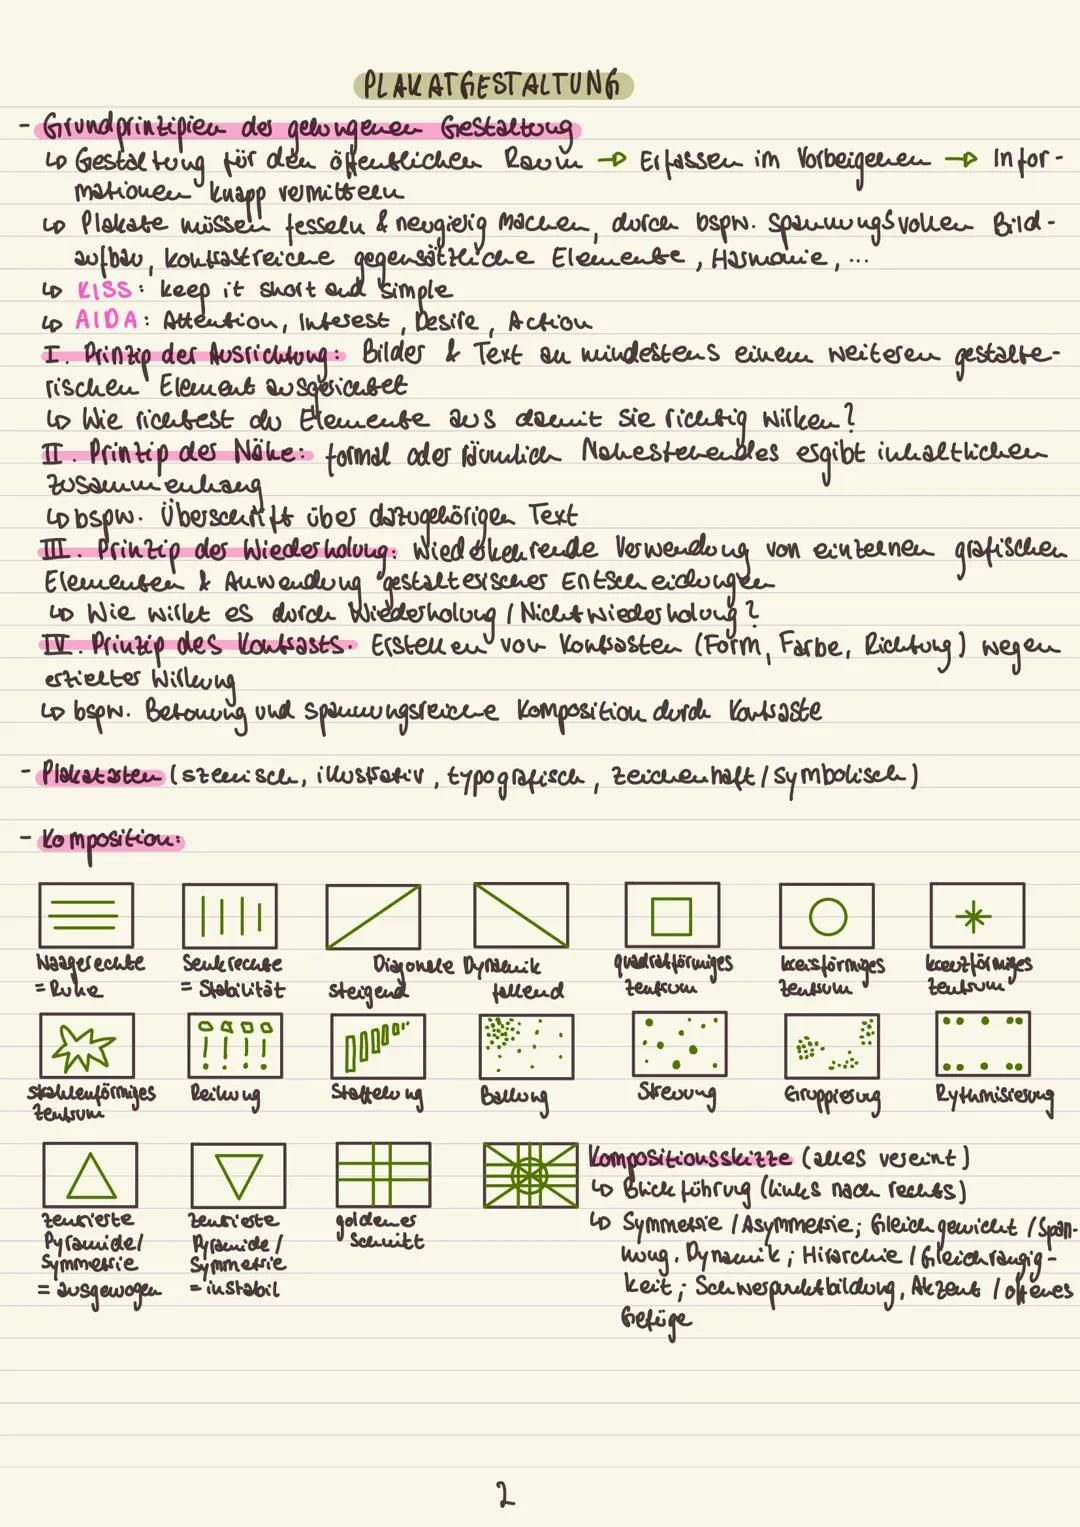 PLAKATGESTALTUNG
- Grundprinzipien der gelungenen Gestaltung
↳ Gestaltung für den öffentlichen Raum → Erfassen im Vorbeigehen → Infor-
mationen knapp vermitteln
↳ Plakate müssen fesseln & neugierig machen, durch bspw. spannungsvollen Bild-
aufbau, kontrastreiche gegensätzliche Elemente, Harmonie, ...
↳ KISS: keep it short and simple
↳ AIDA: Attention, Interest, Desire, Action
I. Prinzip der Ausrichtung: Bilder & Text an mindestens einem weiteren gestalte-
rischen Element ausgerichtet
↳ Wie richtest du Elemente aus damit sie richtig wirken?
II. Prinzip der Nähe: formal oder räumlich Nahestehendes ergibt inhaltlichen
Zusammenhang
↳ bspw. Überschrift über dazugehörigen Text
III. Prinzip der Wiederholung: Wiederkehrende Verwendung von einzelnen grafischen
Elementen & Anwendung gestalterischer Entscheidungen
↳ Wie wirkt es durch Wiederholung / Nichtwiederholung?
IV. Prinzip des Kontrasts. Erstellen von Kontrasten (Form, Farbe, Richtung) wegen
erzielter Wirkung
↳ bspw. Betonung und spannungsreiche Komposition durch Kontraste
- Plakatarten (szenisch, illustrativ, typografisch, zeichenhaft / symbolisch)
- Komposition:
Waagerechte
= Ruhe
Senkrechte
= Stabilität
Diagonale Dynamik
steigend fallend
quadratförmiges
Zentrum
kreisförmiges
Zentrum
kreuzförmiges
Zentrum
strahlenförmiges
Zentrum
Reihung
Staffelung
Ballung
Streuung
Gruppierung
Rythmisierung
zentrierte
Pyramide/
Symmetrie
= ausgewogen
zentrierte
Pyramide /
Symmetrie
= instabil
goldener
Schnitt
Kompositionsskizze (alles vereint)
↳ Blickführung (links nach rechts)
↳ Symmetrie / Asymmetrie; Gleichgewicht / Span-
nung, Dynamik; Hirarchie / Gleichrangig-
keit; Schwerpunktbildung, Akzent / offenes
Gefüge
2